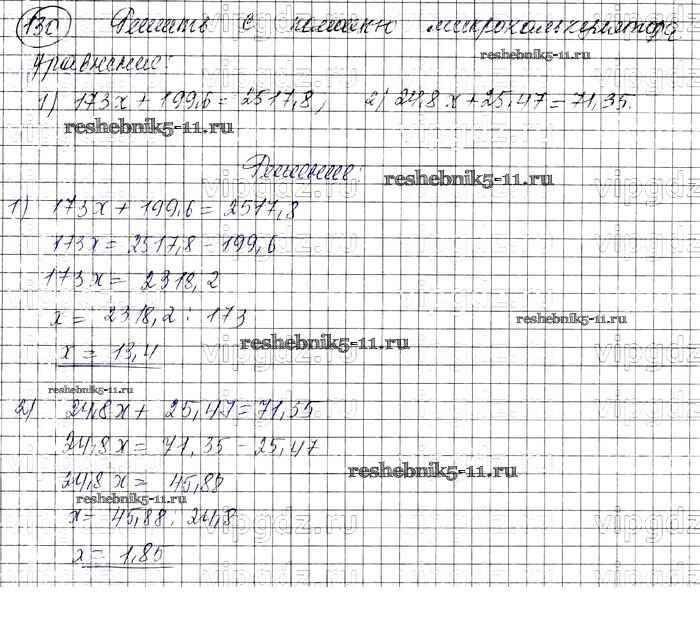 130 Решить с помощью микрокалькулятора
reshebnik5-11.ru
уравнение:
1) 173x + 199,6 = 2517,8; 2) 24,8x + 25,47 = 71,35.
reshebnik5-11.ru
Решение:
reshebnik5-11.ru
vipgdz.ru
1) 173x + 199,6 = 2517,8
173x = 2517,8 - 199,6
173x = 2318,2
x = 2318,2 : 173
reshebnik5-11.ru
reshebnik5-11.ru
x = 13,4
vipgdz.ru
reshebnik5-11.ru
2) 24,8x + 25,47 = 71,35
24,8x = 71,35 - 25,47
reshebnik5-11.ru
24,8x = 45,88
reshebnik5-11.ru
x = 45,88 : 24,8
vipgdz.ru
x = 1,85